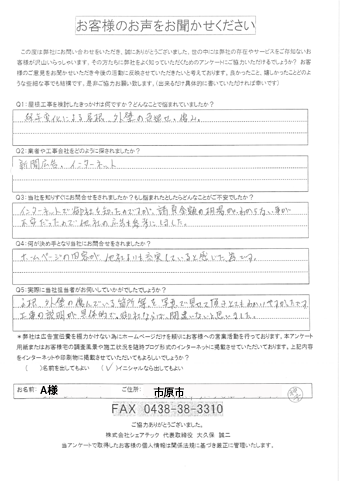 お客様のお声をお聞かせください
この度は弊社にお問い合わせをいただき、誠にありがとうございました。世の中には弊社の存在やサービスをご存知ないお
客様が沢山いらっしゃいます。その方たちに弊社をよく知っていただくためのアンケートにご協力いただけるでしょうか？お客
様のご意見をお聞かせいただき今後の活動に反映させていただきたいと考えております。良かったこと、嬉しかったことどのよ
うな些細な事でも結構です。是非ご協力お願い致します。(出来るだけ具体的に書いていただければ幸いです)
Q1：屋根工事を検討したきっかけは何ですか？どんなことで悩まれていましたか？
経年劣化による屋根、外壁の色褪せ、傷み。
Q2：業者や工事会社をどのように探されましたか？
新聞広告、インターネット
Q3：当社を知りすぐにお問合せをされましたか？もし悩まれたとしたらどんなことがご不安でしたか？
インターネットで御社を知ったのですが、請負金額の相場がわからない事が
不安だったので他社の広告も参考にしました。
Q4：何が決め手となり当社にお問合せをされましたか？
ホームページの内容が他社よりも充実していると感じた為です。
Q5：実際に当社担当者がお伺いしていかがでしたでしょうか？
屋根、外壁の傷んでいる箇所等を写真で見せて頂きとてもわかりやすかったです。
工事の説明が具体的で御社ならば間違いないと思いました。
＊弊社は広告宣伝費を極力かけない為にホームページだけを頼りにお客様への営業活動を行っております。本アンケート
用紙またはお客様宅の調査風景や施工状況を随時ブログ形式のインターネットに掲載させていただいております。上記内容
をインターネットや印刷物に掲載させていただいてもよろしいでしょうか？
( )名前を出してもよい (✓)イニシャルなら出してもよい
お名前: A様 ご住所: 市原市
FAX 0438-38-3310
ご協力ありがとうございました。
株式会社シェアテック 代表取締役 大久保 誠二
当アンケートで取得したお客様の個人情報は関係法規に基づき厳正に管理いたします。